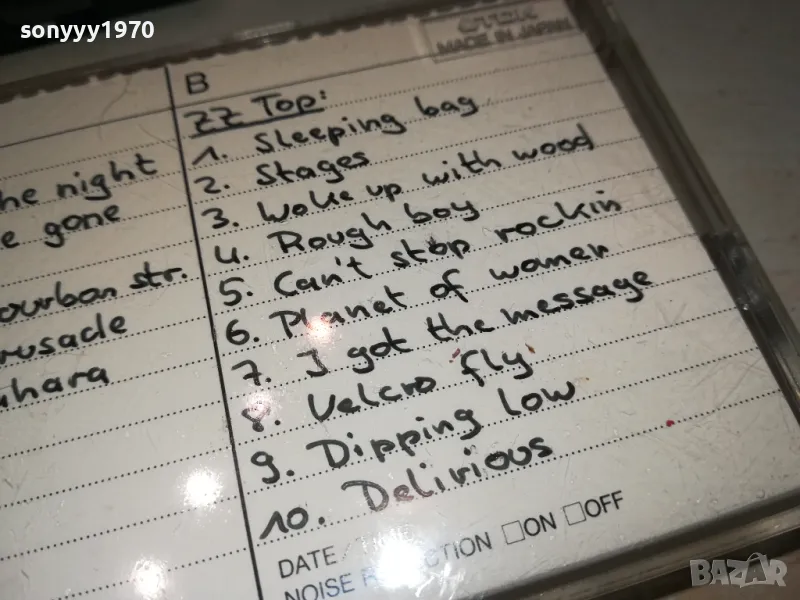 sonyyy1970
MADE IN JAPAN
B
ZZ Top:
1. Sleeping bag
2. Stages
3. Woke up with wood
4. Rough boy
5. Can't stop rockin
6. Planet of women
7. I got the message
8. Velcro fly
9. Dipping low
10. Delirious
he night
e gone
ourbon str.
rusade
ahara
DATE
NOISE ON OFF
BAZAR